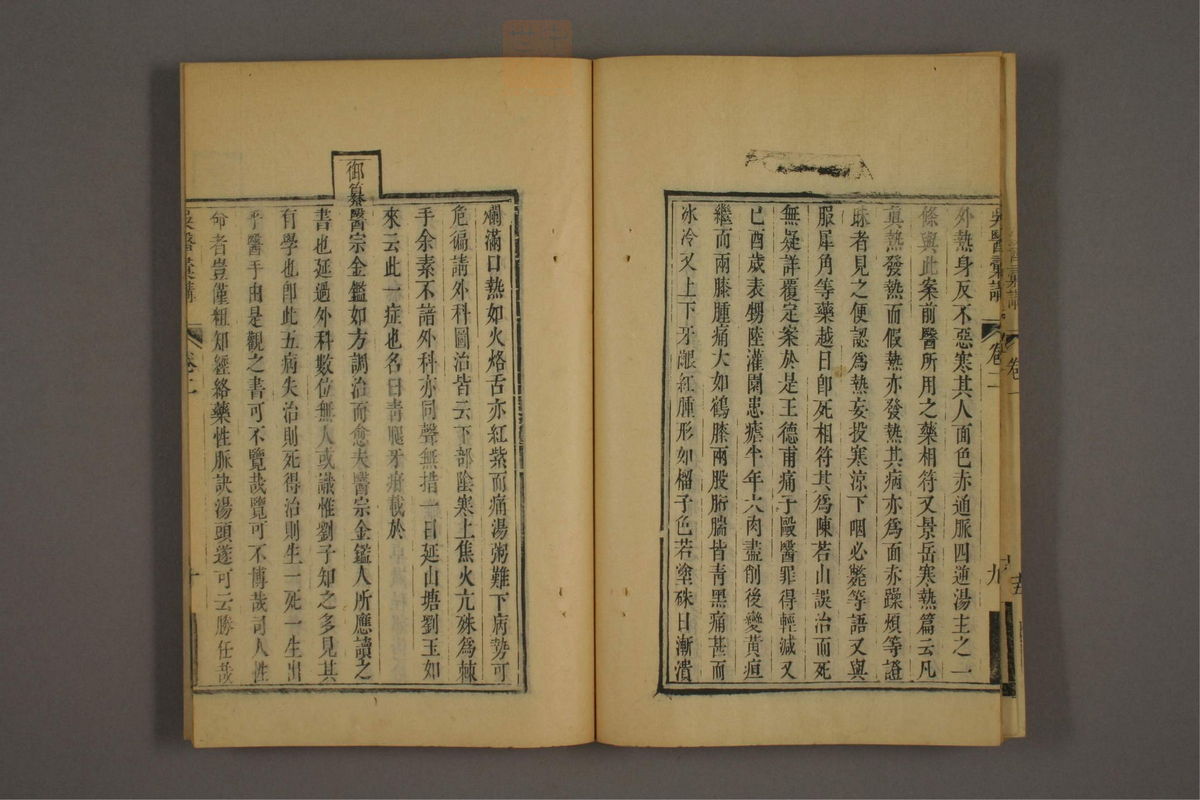 吳醫彙講
卷二
九
外熱身反不惡寒其人面色赤通脈四逆湯主之二
條與此案前醫所用之藥相符又景岳寒熱篇云凡
眞熱發熱而假熱亦發熱其病亦爲面赤躁煩等證
昧者見之便認爲熱妄投寒涼下咽必斃等語又與
服犀角等藥越日卽死相符其爲陳若山誤治而死
無疑詳覆定案於是王德甫痛子毆醫罪得輕減又
己酉歲表甥陸灌園患瘧半年大肉盡削後變黃疸
繼而兩膝腫痛大如鶴膝兩股胻腨皆青黑痛甚而
冰冷又上下牙齦紅腫形如榴子色若塗硃日漸潰
爛滿口熱如火烙舌亦紅紫而痛湯粥難下病勢可
危徧請外科圖治皆云下部陰寒上焦火亢殊爲棘
手余素不諳外科亦同聲無措一日延山塘劉玉如
來云此一症也名曰青腿牙疳載於
御纂醫宗金鑑如方調治而愈夫醫宗金鑑人所應讀之
書也延過外科數位無人或識惟劉子知之多見其
有學也卽此五病失治則死得治則生一死一生出
乎醫手由是觀之書可不覽哉覽可不博哉司人性
命者豈僅粗知經絡藥性脈訣湯頭遂可云勝任哉
吳醫彙講
卷二
十